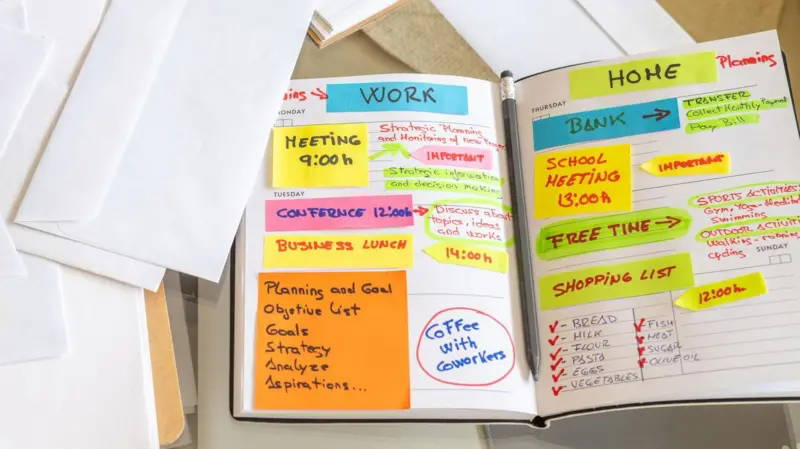 WORK
MONDAY
MEETING
9:00h
Strategic Planning
and Monitoring of new
IMPORTANT
Strategic information
and decision making
TUESDAY
CONFERNCE 12:00h
Discuss about
topics, ideas
and works
BUSINESS LUNCH
14:00h
Planning and Goal
Objetive List
Goals
Strategy
Analyze
Aspirations...
COFFEE
WITH
COWORKERS
HOME
Planning
THURSDAY
BANK
TRANSFER
Collect Monthly Payment
Pay Bill
SCHOOL
MEETING
13:00h
IMPORTANT
FREE TIME
SPORTS ACTIVITIES
Gym, Yoga
Swimming
OUTDOOR ACTIVITI
Walking - running
cycling
SUNDAY
SHOPPING LIST
12:00h
- BREAD
- MILK
- FLOUR
- PASTA
- EGGS
- VEGETABLES
- FISH
- MEAT
- SUGAR
- OLIVE OIL